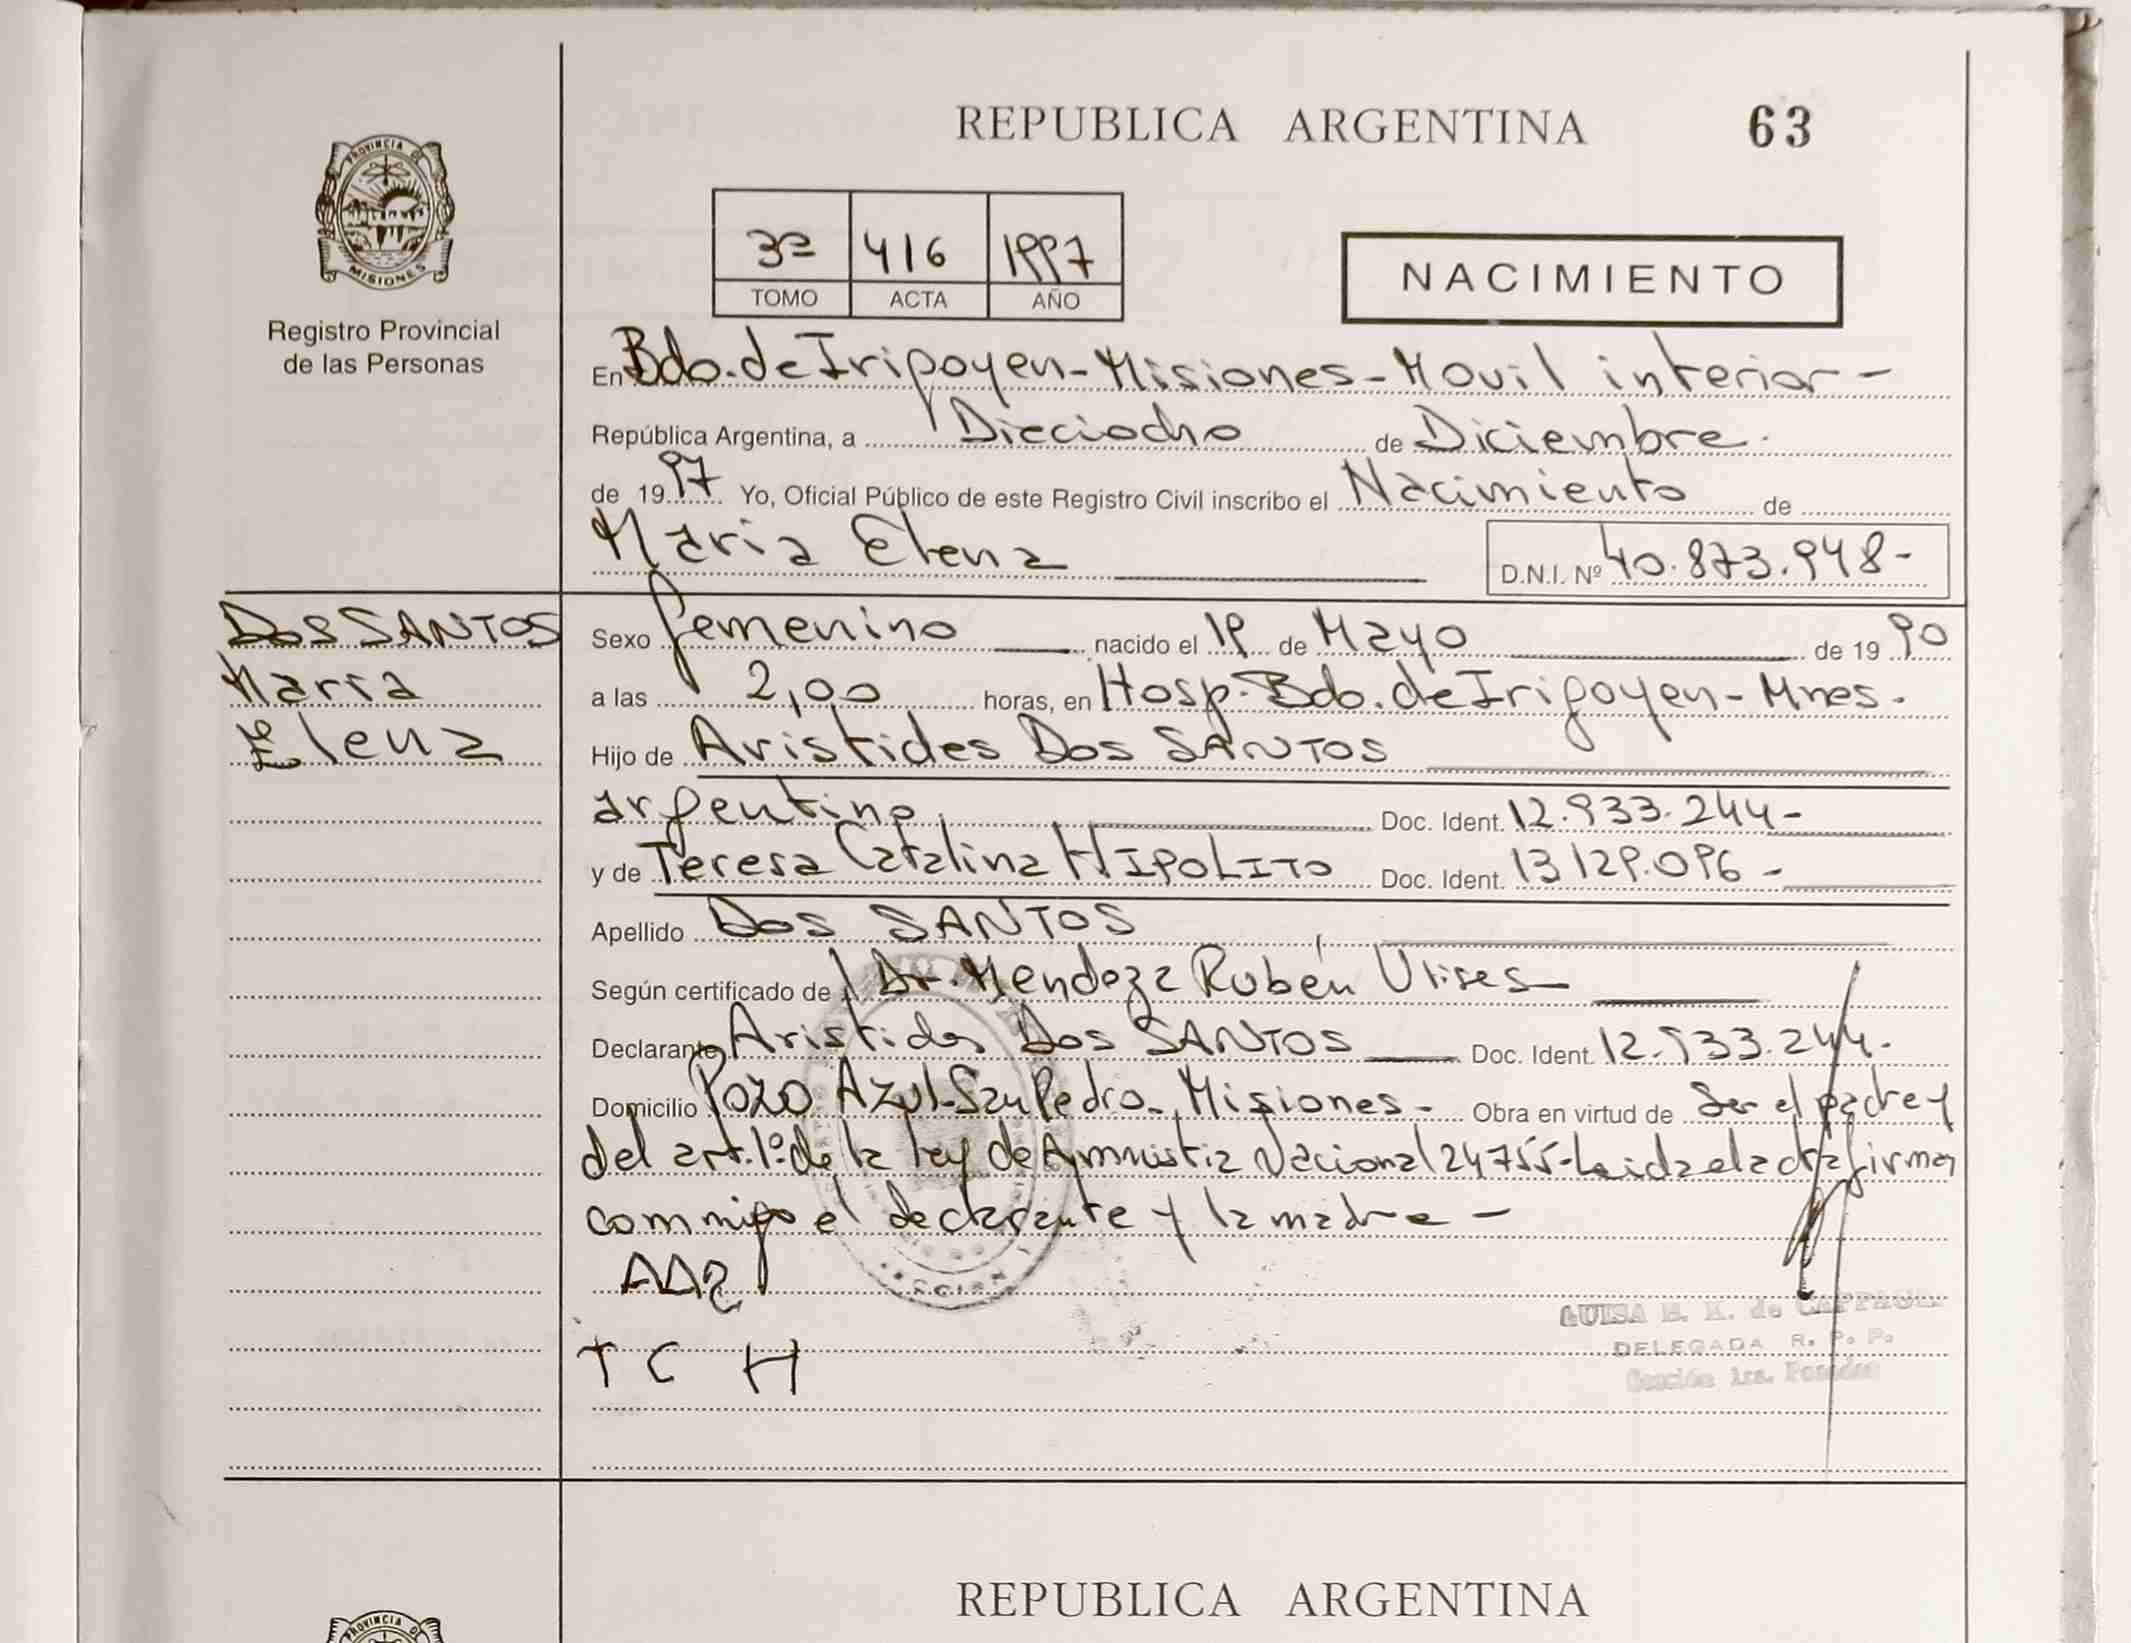 REPUBLICA ARGENTINA 63
PROVINCIA DE
MISIONES
Registro Provincial
de las Personas
3º 416 1997
TOMO ACTA AÑO
NACIMIENTO
En Bdo. de Irigoyen - Misiones - Movil interior -
República Argentina, a Dieciocho de Diciembre.
de 1997 Yo, Oficial Público de este Registro Civil inscribo el Nacimiento de
Maria Elena
D.N.I. Nº 40.873.948-
DOS SANTOS
Maria
Elena
Sexo femenino nacido el 19 de Mayo de 1990
a las 2,00 horas, en Hosp. Bdo. de Irigoyen - Mnes.
Hijo de Aristides Dos SANTOS
argentino Doc. Ident. 12.933.244-
y de Teresa Catalina HIPOLITO Doc. Ident. 13129.096-
Apellido Dos SANTOS
Según certificado de Dr. Mendoza Rubén Ulises
Declarante Aristides Dos SANTOS Doc. Ident. 12.933.244.
Domicilio Pozo Azul - San Pedro - Misiones - Obra en virtud de Ser el padre y
del art. 1º de la ley de Amnistia Nacional 24755 - Leida el acta firman
conmigo el declarante y la madre -
T C H
LUISA de
DELEGADA R. P. P.
Sección 1ra. Posadas
REPUBLICA ARGENTINA
PROVINCIA